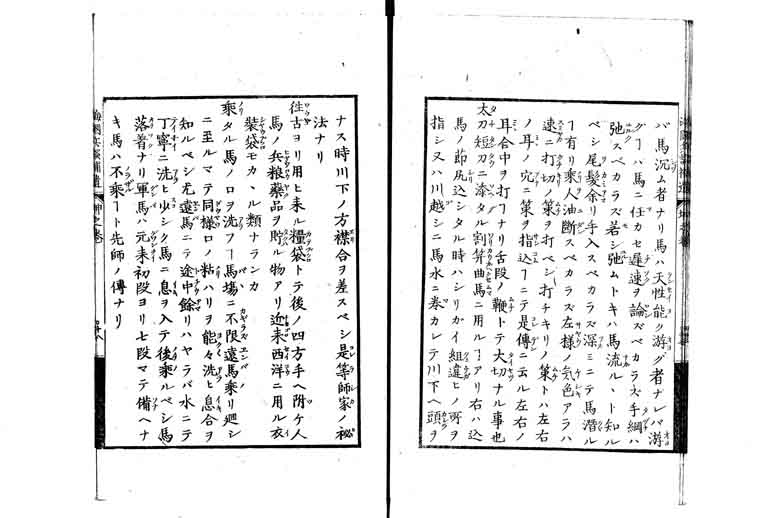 バ馬沉ム者ナリ馬ハ天性能ク游グ者ナレバ游
グヿハ馬ニ任カセ遅速ヲ論ズベカラズ手綱ハ
弛スベカラズ若シ弛ムトキハ馬流ルヽト知ル
ベシ尾髪余リ手入スベカラズ深ミニテ馬潜ル
ヿ有リ乗人油斷スベカラズ左様ノ気色アラハ
速ニ打切ノ策ヲ打ベシ打チキリノ策トハ左右
ノ耳ノ穴ニ策ヲ指込ヿニテ是傳ニ云ル左右ノ
耳合中ヲ打ヿナリ舌段ノ鞭トテ大切ナル事也
太刀短刀ニ添タル割笄曲馬ニ用ルヿアリ右ハ込
馬ノ即尻込シタル時ハシリカイ組違ヒノ所ヲ
指シ又ハ川越シニ馬水ニ巻カレテ川下ヘ頭ヲ
ナス時川下ノ方襟合ヲ差スベシ是等師家ノ祕
法ナリ
徃古ヨリ用ヒ来ル糧袋トテ後ノ四方手ヘ附ケ人
馬ノ兵粮藥品ヲ貯ル物アリ近来西洋ニ用ル衣
裝袋モカヽル類ナランカ
乗タル馬ノ口ヲ洗フヿ馬場ニ不限遠馬乗リ廻シ
ニ至ルマテ同様口ノ粘ハリヲ能々洗ヒ息合ヲ
知ルベシ尤遠馬ニテ途中餘リハヤラバ水ニテ
丁寧ニ洗ヒ少シク馬ニ息ヲ入テ後乗ルベシ馬
落着ナリ軍馬ハ元来初段ヨリ七段マテ備ヘナ
キ馬ハ不乗ヿト先師ノ傳ナリ